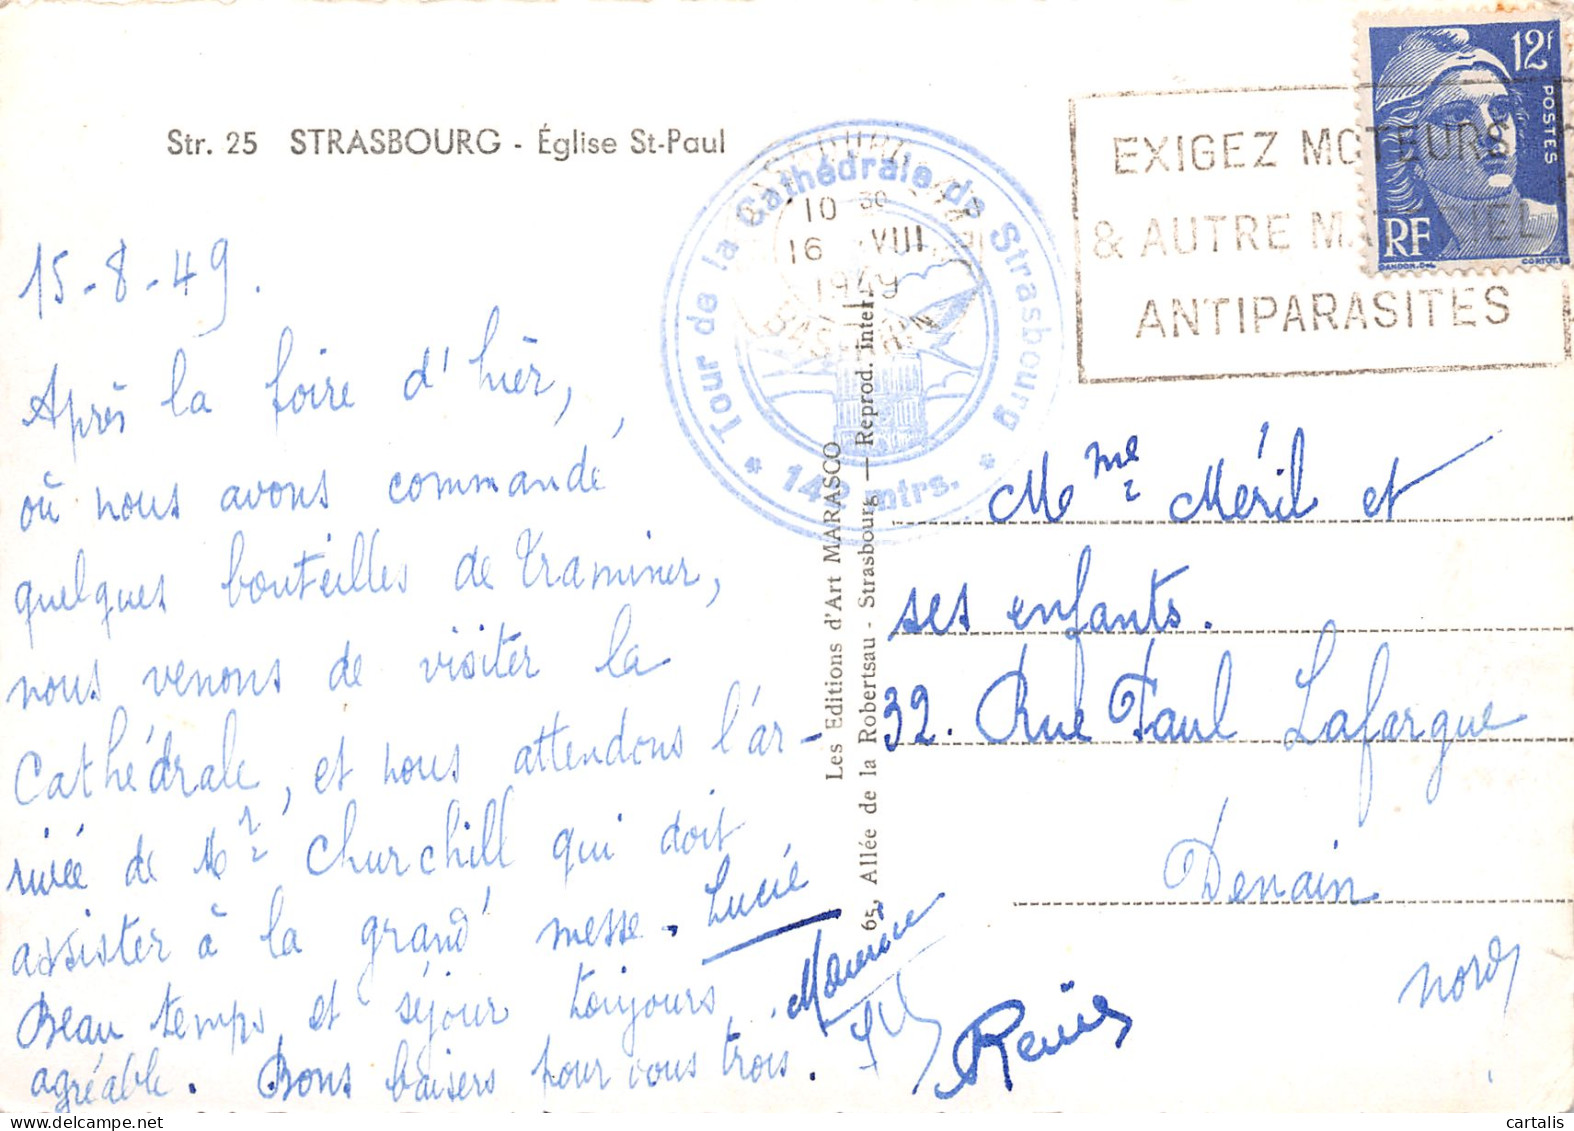 Str. 25 STRASBOURG - Église St-Paul
15-8-49.
Après la foire d'hier,
où nous avons commandé
quelques bouteilles de Traminer,
nous venons de visiter la
Cathédrale, et nous attendons l'ar-
rivée de Mr Churchill qui doit
assister à la grand' messe. Lucie
Beau temps et séjour toujours
agréable. Bons baisers pour vous trois.
Maurice
Tour de la Cathédrale de Strasbourg
* 142 mtrs. *
10 30
16 VIII
1949
BAS-RHIN
Les Editions d'Art MARASCO
65, Allée de la Robertsau - Strasbourg — Reprod. inter.
12f
POSTES
RF
GANDON.DEL
CORTOT.SC
EXIGEZ MOTEURS
& AUTRE MATERIEL
ANTIPARASITES
Mme Méril et
ses enfants.
32. Rue Paul Lafargue
Denain
Nord
cartalis
www.delcampe.net